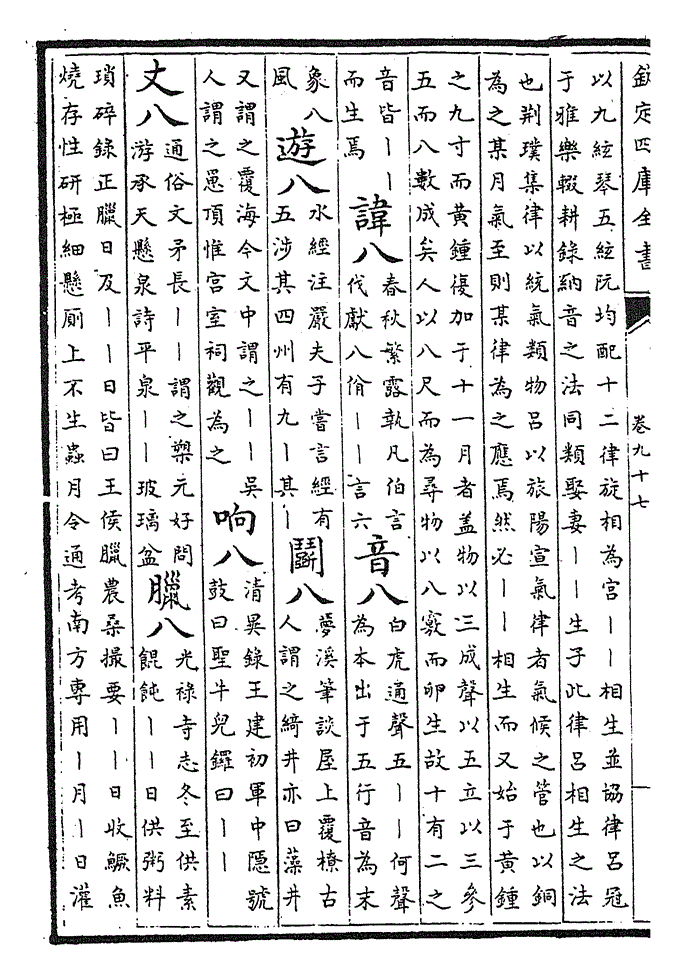 欽定四庫全書
卷九十七
以九絃琴五絃阮均配十二律旋相為宮丨丨相生並協律呂冠
于雅樂輟耕錄納音之法同類娶妻丨丨生子此律呂相生之法
也荆璞集律以統氣類物呂以旅陽宣氣律者氣候之管也以銅
為之某月氣至則某律為之應焉然必丨丨相生而又始于黃鍾
之九寸而黃鍾復加于十一月者蓋物以三成聲以五立以三參
五而八數成矣人以八尺而為尋物以八竅而卵生故十有二之
音皆丨丨
而生焉
諱八
春秋繁露執凡伯言
伐獻八佾丨丨言六
音八
白虎通聲五丨丨何聲
為本出于五行音為末
象八
風
遊八
水經注嚴夫子嘗言經有
五涉其四州有九丨其丨
鬭八
夢溪筆談屋上覆橑古
人謂之綺井亦曰藻井
又謂之覆海今文中謂之丨丨吳
人謂之罳頂惟宮室祠觀為之
响八
清異錄王建初軍中隱號
鼓曰聖牛兒鑼曰丨丨
丈八
通俗文矛長丨丨謂之槊元好問
游承天懸泉詩平泉丨丨玻璃盆
臘八
光祿寺志冬至供素
餛飩丨丨日供粥料
瑣碎錄正臘日及丨丨日皆曰王侯臘農桑撮要丨丨日收鱖魚
燒存性研極細懸廁上不生蟲月令通考南方専用丨月丨日灌